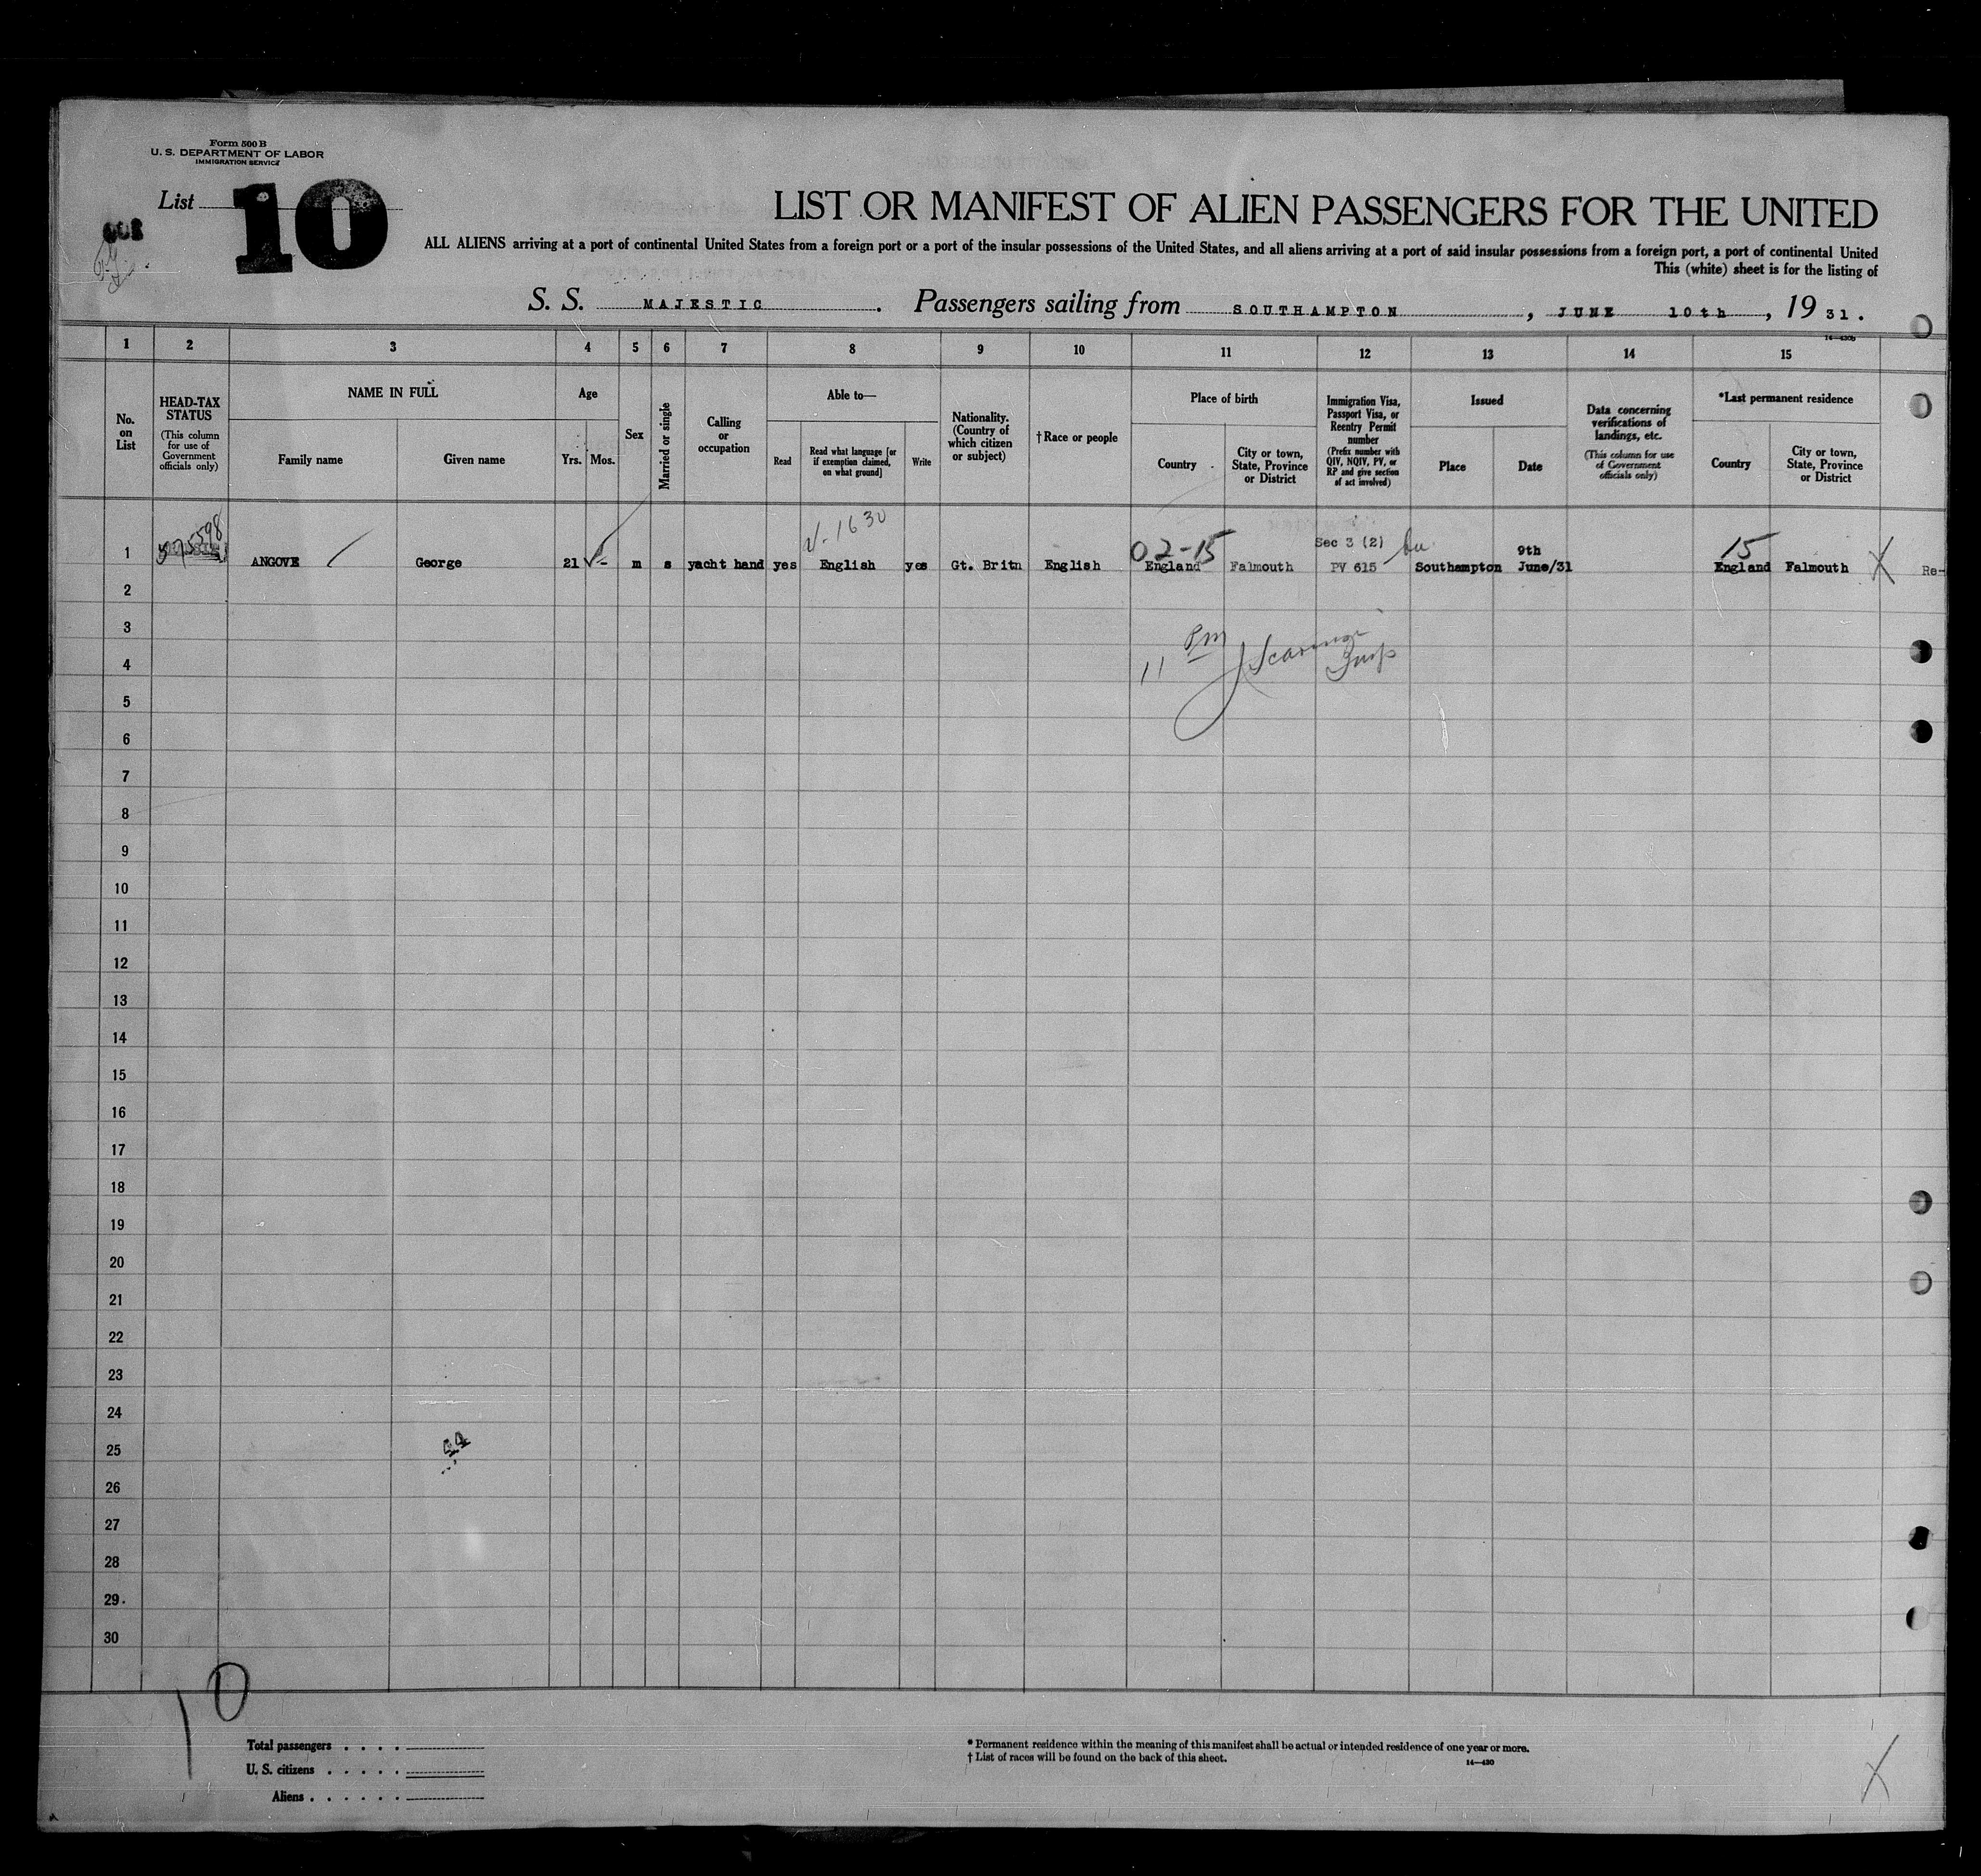 Form 500 B
U. S. DEPARTMENT OF LABOR
IMMIGRATION SERVICE
List 10
LIST OR MANIFEST OF ALIEN PASSENGERS FOR THE UNITED
ALL ALIENS arriving at a port of continental United States from a foreign port or a port of the insular possessions of the United States, and all aliens arriving at a port of said insular possessions from a foreign port, a port of continental United
This (white) sheet is for the listing of
S. S. MAJESTIC. Passengers sailing from SOUTHAMPTON, JUNE 10th, 19 31.
14—430b
1 2 3 4 5 6 7 8 9 10 11 12 13 14 15
No. on List
HEAD-TAX STATUS
(This column for use of Government officials only)
NAME IN FULL
Family name
Given name
Age
Yrs. Mos.
Sex
Married or single
Calling or occupation
Able to—
Read
Read what language [or if exemption claimed, on what ground]
Write
Nationality. (Country of which citizen or subject)
†Race or people
Place of birth
Country
City or town, State, Province or District
Immigration Visa, Passport Visa, or Reentry Permit number
(Prefix number with QIV, NQIV, PV, or RP and give section of act involved)
Issued
Place
Date
Data concerning verifications of landings, etc.
(This column for use of Government officials only)
*Last permanent residence
Country
City or town, State, Province or District
V-1630
02-15
Sec 3 (2)
9th
15
1 575598 ANGOVE George 21 - m s yacht hand yes English yes Gt. Britn English England Falmouth PV 615 Southampton June/31 England Falmouth X Re-
2
3
11 PM
4
5
6
7
8
9
10
11
12
13
14
15
16
17
18
19
20
21
22
23
24
25
44
26
27
28
29.
30
10
Total passengers . . . .
U. S. citizens . . . . .
Aliens . . . . . .
* Permanent residence within the meaning of this manifest shall be actual or intended residence of one year or more.
† List of races will be found on the back of this sheet.
14—430
X